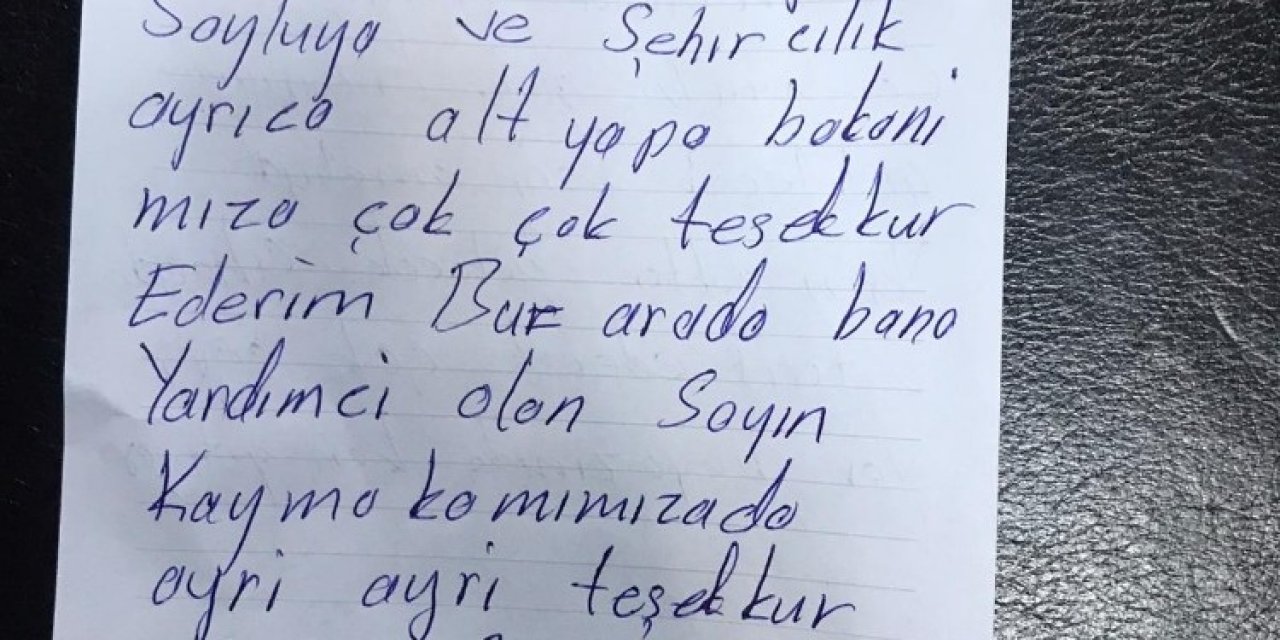 Soyluya ve Şehircilik
ayrıca alt yapa bakani
mıza çok çok teşekkur
Ederim Bur arada bana
Yardımci olan Sayın
Kaymakamımızada
ayri ayri teşekkur